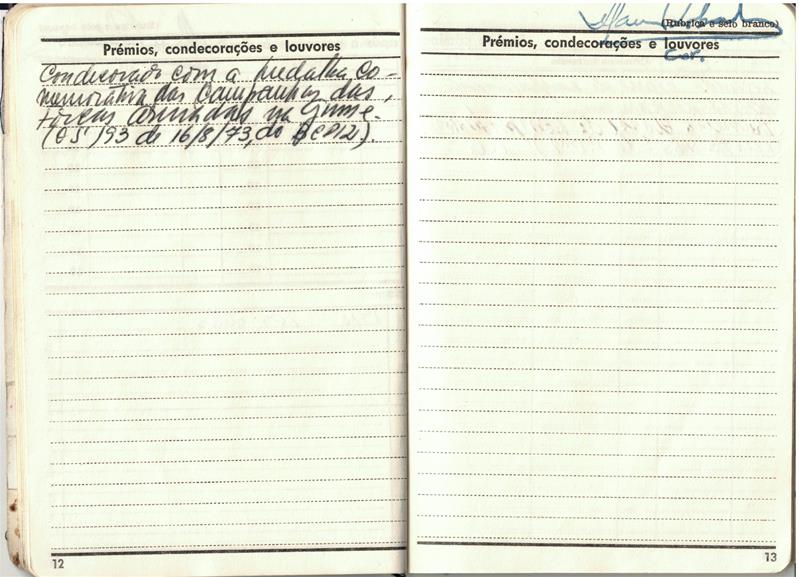 Prémios, condecorações e louvores
Condecorado com a medalha co-
memorativa das Campanhas das
forças armadas na Guiné.
(OS 193 de 16/8/73, do BCP12).
12
(Rubrica e selo branco)
Prémios, condecorações e louvores
Cor.
13